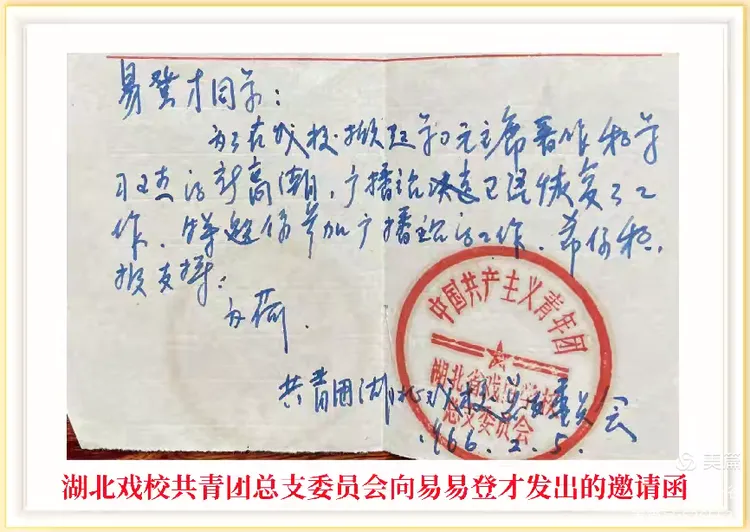 易登才同学：
为了在戏校掀起学习毛主席著作和学
习王杰的新高潮，广播站决定已经恢复了工
作。特邀你参加广播站的工作。希你积
极支持：
为荷.
中国共产主义青年团
湖北省戏曲学校
总支委员会
共青团湖北戏校总支委员会
1966.2.5.
湖北戏校共青团总支委员会向易易登才发出的邀请函
美篇